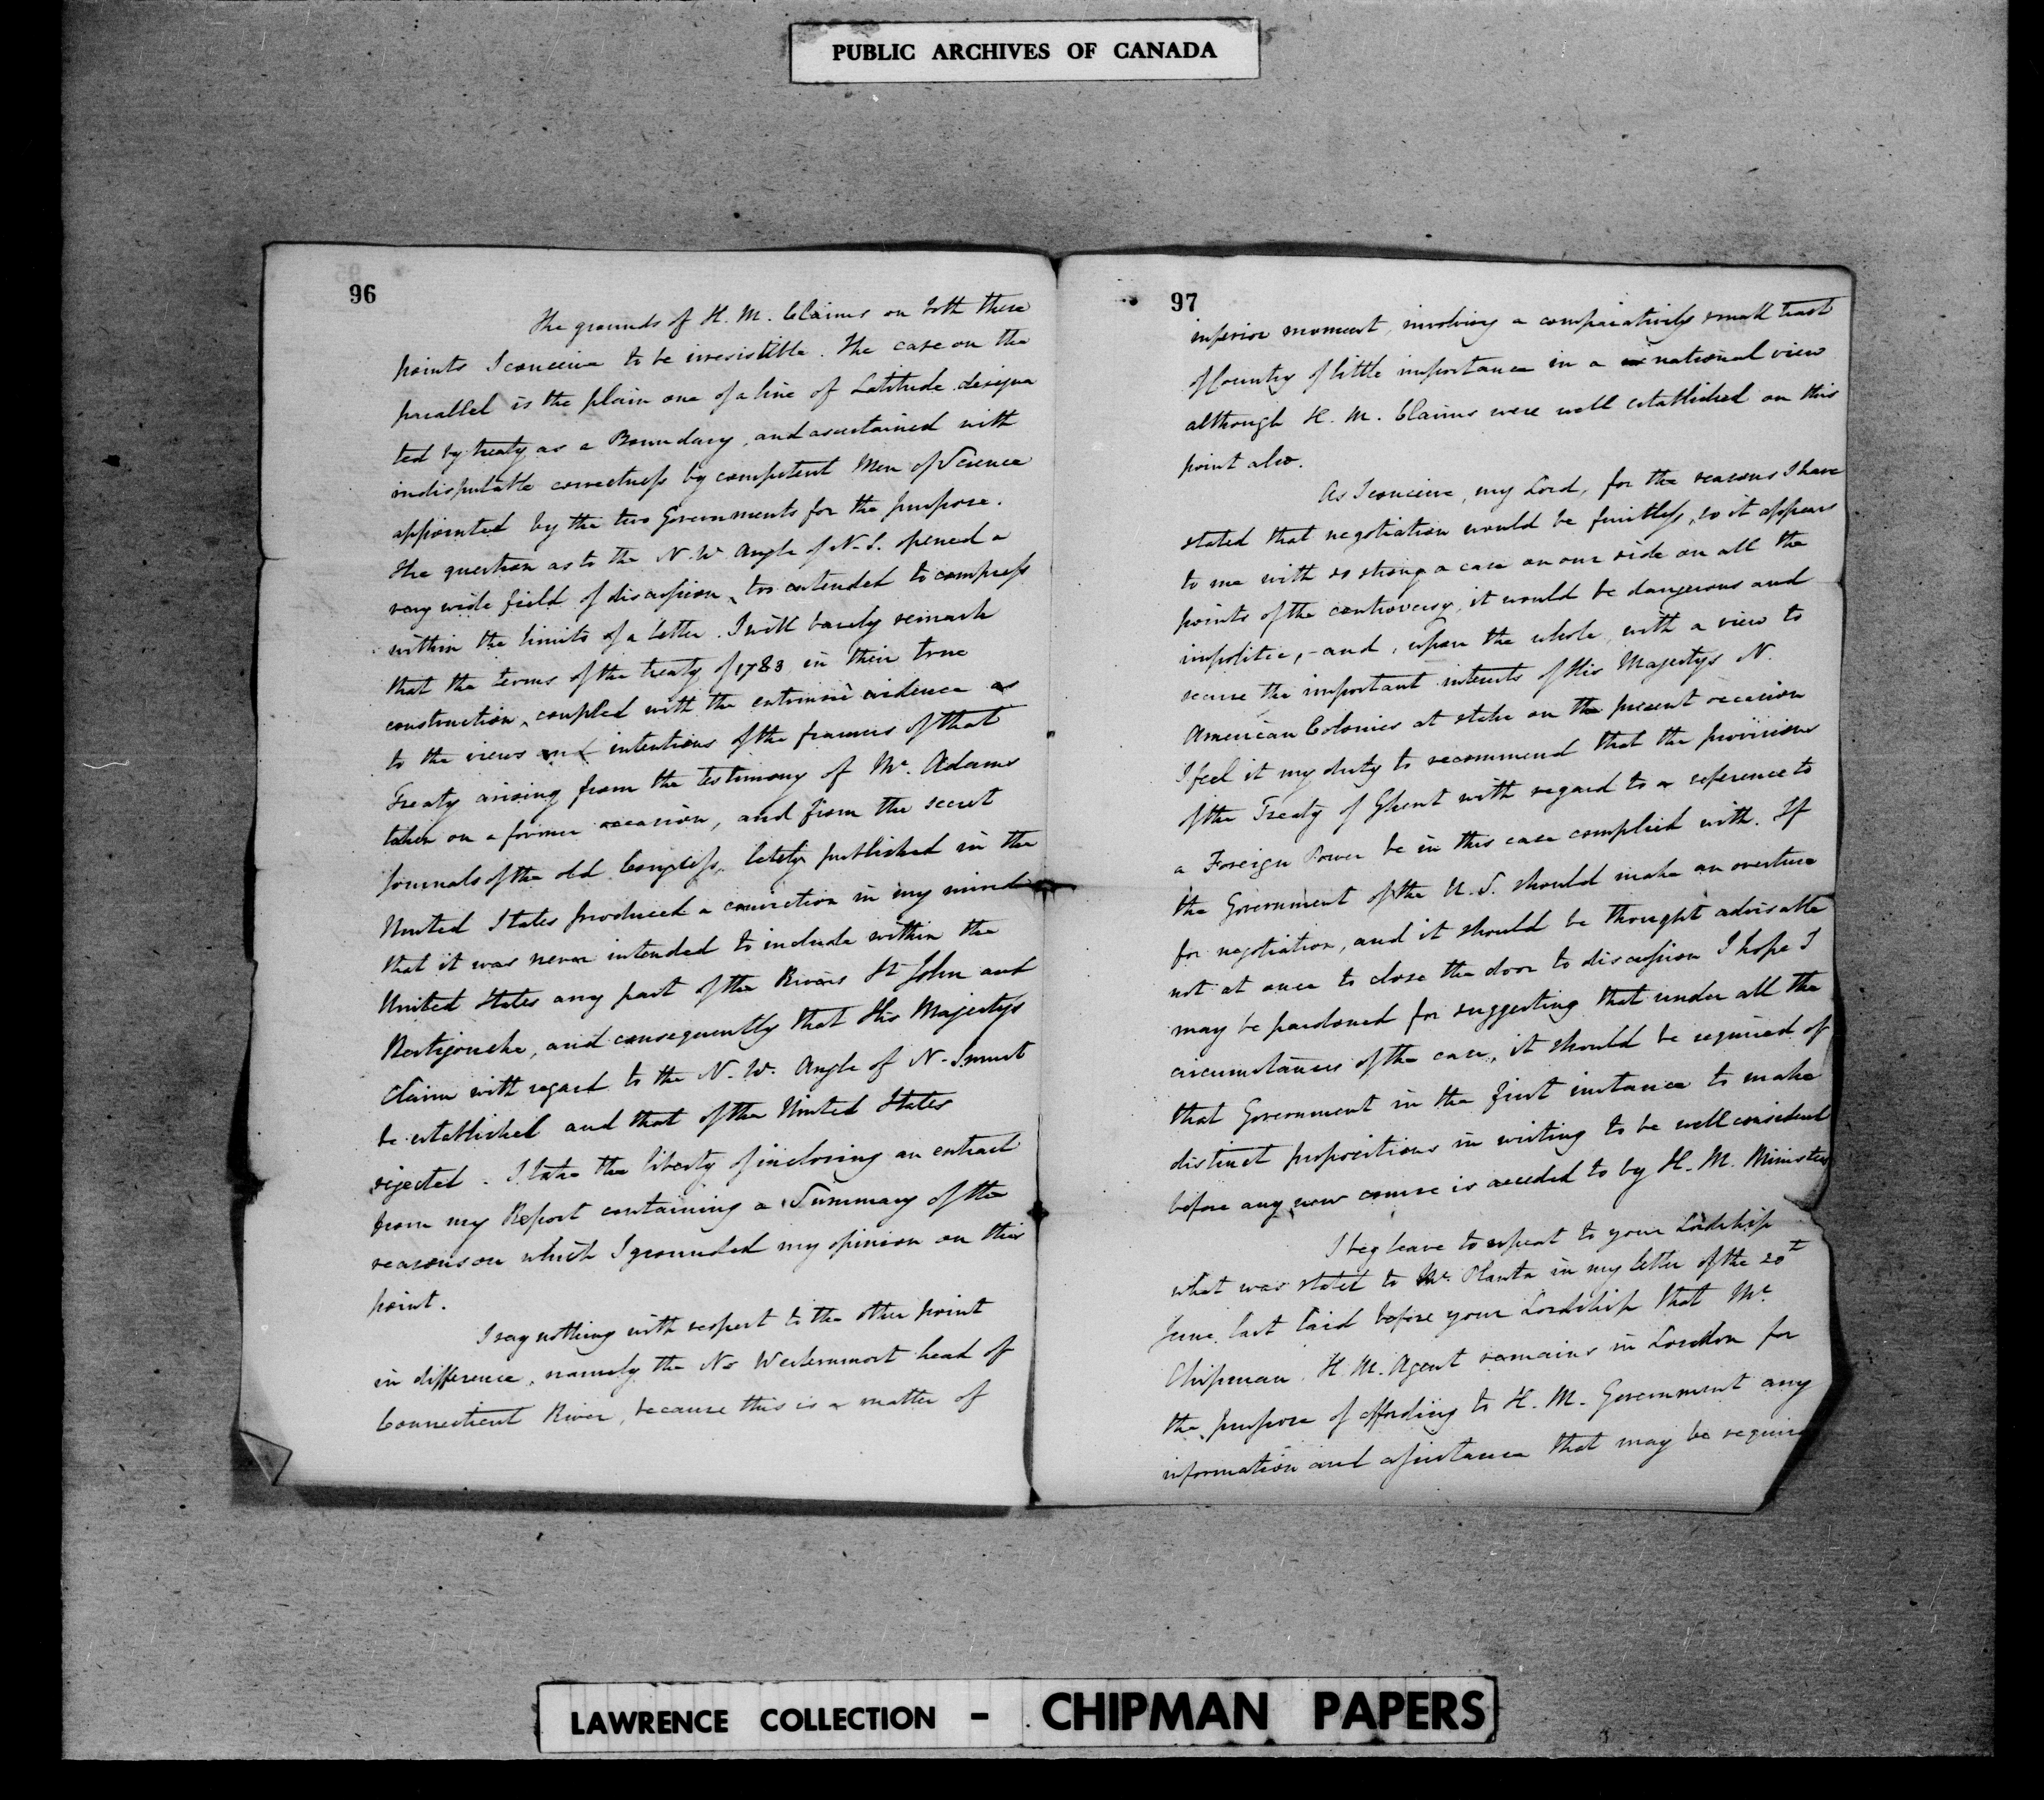 PUBLIC ARCHIVES OF CANADA
96
The grounds of H. M. Claims on both these
points I conceive to be irresistible. The case on the
parallel is the plain one of a line of Latitude designa
ted by treaty as a Boundary, and ascertained with
indisputable correctness by competent Men of Science
appointed by the two Governments for the purpose.
The question as to the N. W. Angle of N. S. opened a
very wide field of discussion, too extended to compress
within the limits of a letter. I will barely remark
that the terms of the treaty of 1783 in their true
construction, coupled with the extrinsic evidence as
to the views and intentions of the framers of that
Treaty arising from the testimony of Mr. Adams
taken on a former occasion, and from the secret
Journals of the old Congress, lately published in the
United States produced a conviction in my mind
that it was never intended to include within the
United States any part of the Rivers St John and
Restigouche, and consequently that His Majesty's
Claim with regard to the N. W. Angle of N. S must
be established and that of the United States
rejected. I take the liberty of inclosing an extract
from my Report containing a Summary of the
reasons on which I grounded my opinion on this
point.
I say nothing with respect to the other point
in difference, namely the No Westernmost head of
Connecticut River, because this is a matter of
97
inferior moment, involving a comparatively small tract
of Country of little importance in a national view
although H. M. Claims were well established on this
point also.
As I conceive, my Lord, for the reasons I have
stated that negotiation would be fruitless, so it appears
to me with so strong a case on our side on all the
points of the controversy, it would be dangerous and
impolitic, - and, upon the whole, with a view to
secure the important interests of His Majestys N.
American Colonies at stake on the present occasion
I feel it my duty to recommend that the provisions
of the Treaty of Ghent with regard to a reference to
a Foreign Power be in this case complied with. If
the Government of the U. S. should make an overture
for negotiation, and it should be thought advisable
not at once to close the door to discussion I hope I
may be pardoned for suggesting that under all the
circumstances of the case, it should be required of
that Government in the first instance to make
distinct propositions in writing to be well considered
before any new course is acceded to by H. M. Ministers
I beg leave to repeat to your Lordship
what was stated to Mr. Planta in my letter of the 20th
June last laid before your Lordship that Mr
Chipman H. M. Agent remains in London for
the purpose of affording to H. M. Government any
information and assistance that may be require
LAWRENCE COLLECTION - CHIPMAN PAPERS